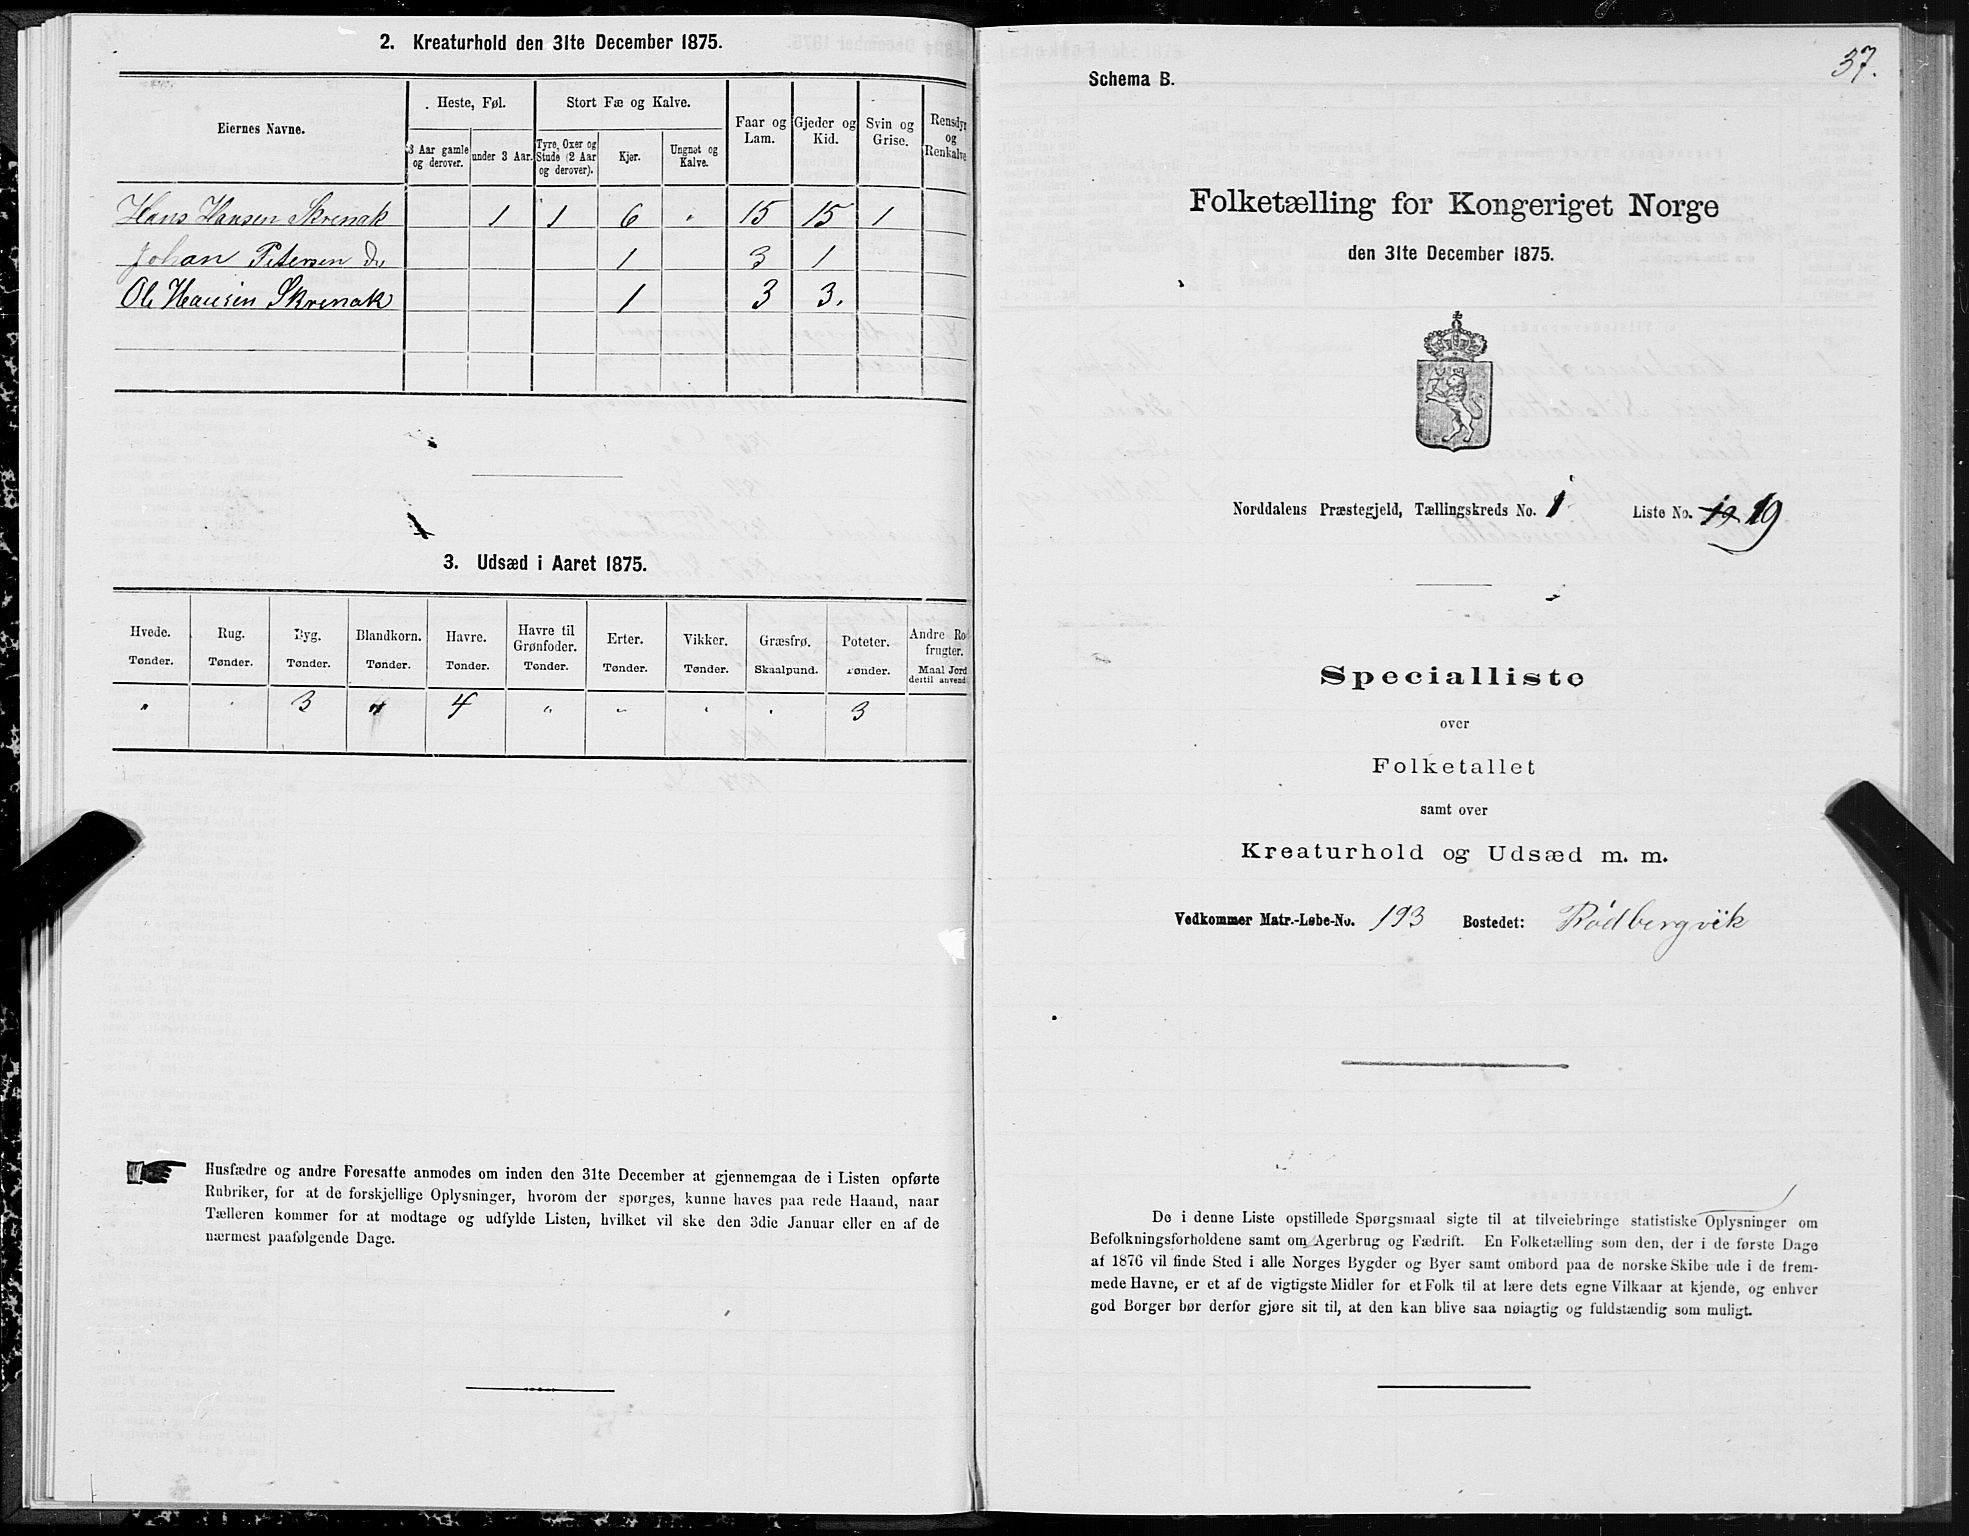 2. Kreaturhold den 31te December 1875.
Eiernes Navne.
Heste, Føl.
Stort Fæ og Kalve.
Faar og Lam.
Gjeder og Kid.
Svin og Grise.
Rensdyr og Renkalve
3 Aar gamle og derover.
under 3 Aar.
Tyre, Oxer og Stude (2 Aar og derover).
Kjør.
Ungnøt og Kalve.
Hans Hansen Skrenak 1 1 6 " 15 15 1
Johan Petersen do 1 3 1
Ole Hansen Skrenak 1 3 3.
3. Udsæd i Aaret 1875.
Hvede. Rug. Byg. Blandkorn. Havre. Havre til Grønfoder. Erter. Vikker. Græsfrø. Poteter. Andre Rodfrugter.
Tønder. Tønder. Tønder. Tønder. Tønder. Tønder. Tønder. Tønder. Skaalpund. Tønder. Maal Jord dertil anvendt
" " 3 " 4 " " " " 3
Husfædre og andre Foresatte anmodes om inden den 31te December at gjennemgaa de i Listen opførte
Rubriker, for at de forskjellige Oplysninger, hvorom der spørges, kunne haves paa rede Haand, naar
Tælleren kommer for at modtage og udfylde Listen, hvilket vil ske den 3die Januar eller en af de
nærmest paafølgende Dage.
37.
Schema B.
Folketælling for Kongeriget Norge
den 31te December 1875.
Norddalens Præstegjeld, Tællingskreds No. 1 Liste No. 19 19
Specialliste
over
Folketallet
samt over
Kreaturhold og Udsæd m. m.
Vedkommer Matr.-Løbe-No. 193 Bostedet: Rødbergvik
De i denne Liste opstillede Spørgsmaal sigte til at tilveiebringe statistiske Oplysninger om
Befolkningsforholdene samt om Agerbrug og Fædrift. En Folketælling som den, der i de første Dage
af 1876 vil finde Sted i alle Norges Bygder og Byer samt ombord paa de norske Skibe ude i de frem-
mede Havne, er et af de vigtigste Midler for et Folk til at lære dets egne Vilkaar at kjende, og enhver
god Borger bør derfor gjøre sit til, at den kan blive saa nøiagtig og fuldstændig som muligt.